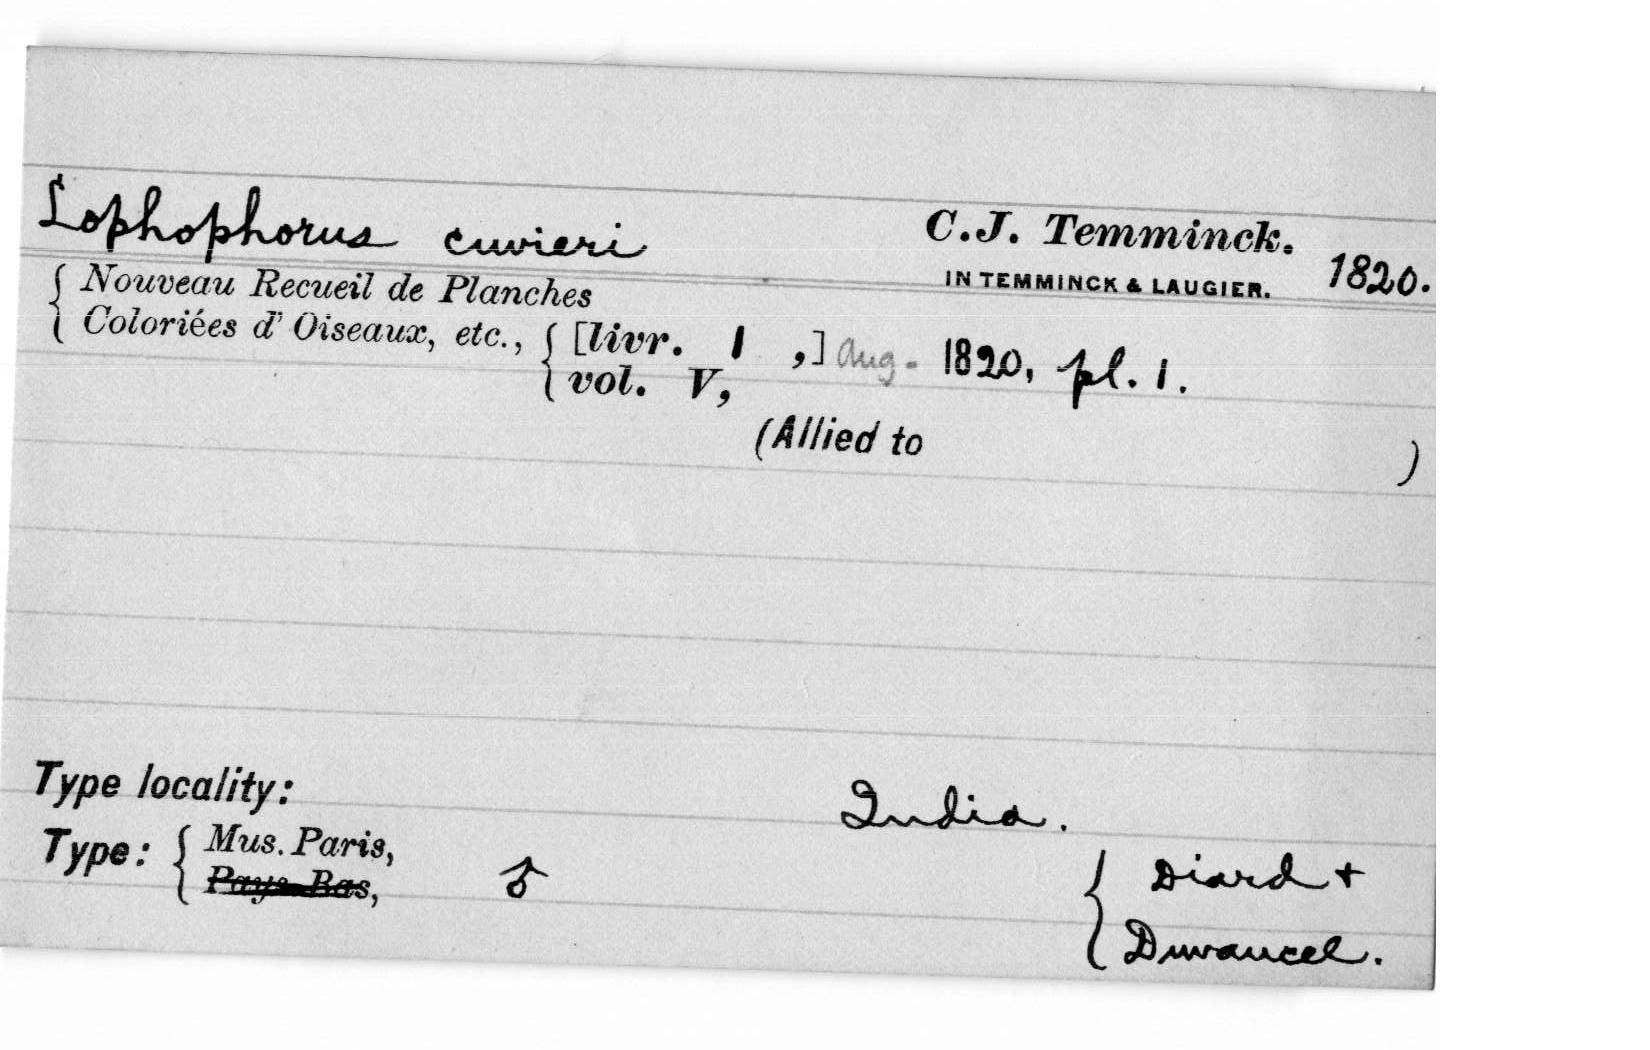 Lophophorus cuvieri C.J. Temminck.
IN TEMMINCK & LAUGIER. 1820.
{ Nouveau Recueil de Planches
Coloriées d' Oiseaux, etc., { [livr. 1 ,] Aug. 1820, pl. 1.
vol. V,
(Allied to )
Type locality: India.
Type: { Mus. Paris, ♂ { Diard +
Pays-Bas, Duvaucel.